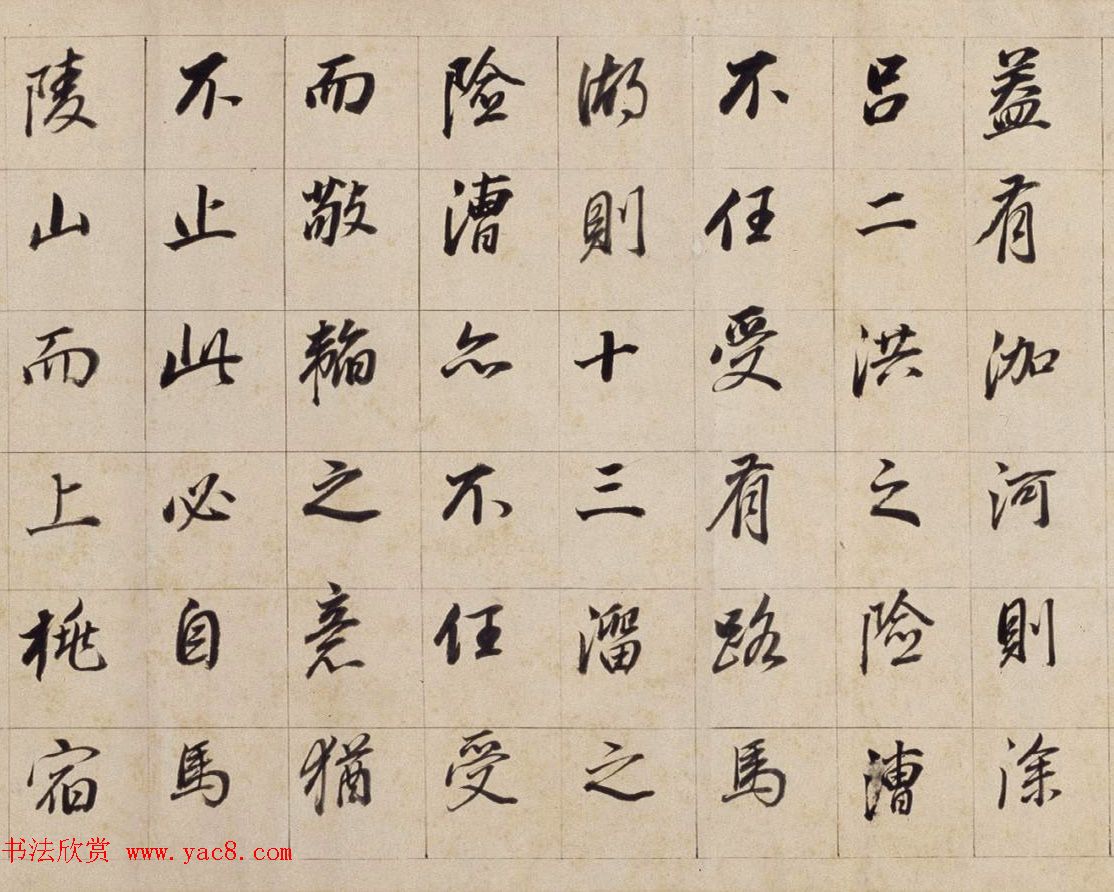 蓋有泇河則徐
呂二洪之險漕
不任受有路馬
湖則十三溜之
險漕亦不任受
而敬韜之意猶
不止此必自馬
陵山而上桃宿
书法欣赏 www.yac8.com